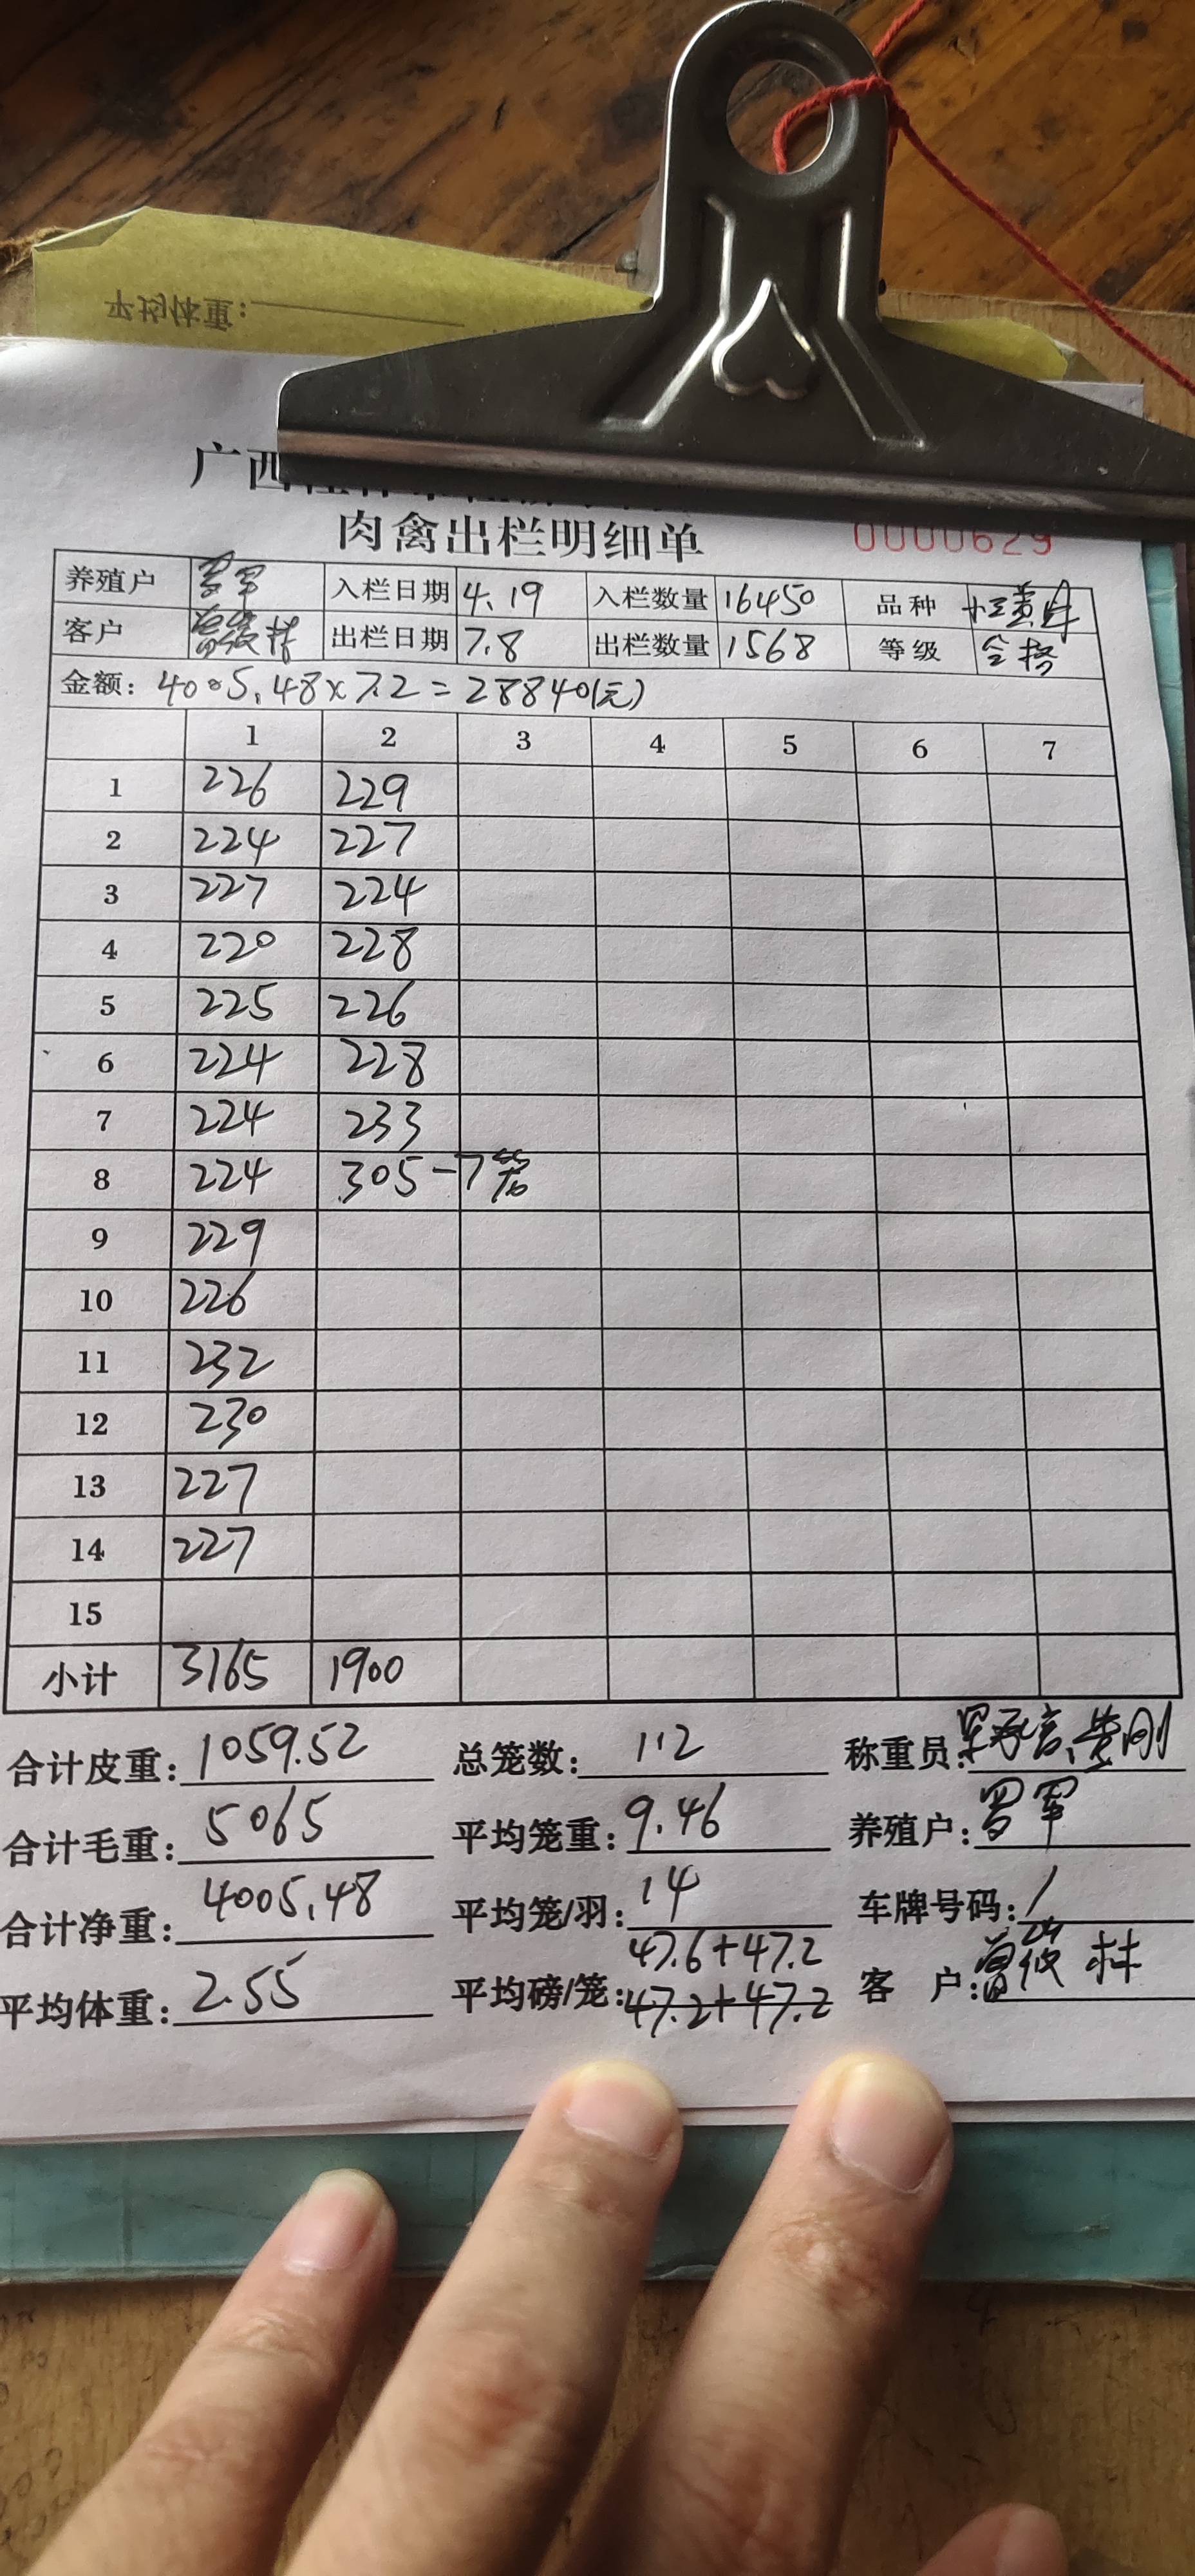 平均体重:
广西
肉禽出栏明细单
0000629
养殖户 罗军 入栏日期 4.19 入栏数量 16450 品种
客户 出栏日期 7.8 出栏数量 1568 等级 合格
金额: 4005.48×7.2=28840(元)
1 2 3 4 5 6 7
1 226 229
2 224 227
3 227 224
4 220 228
5 225 226
6 224 228
7 224 233
8 224 305-7笼
9 229
10 226
11 232
12 230
13 227
14 227
15
小计 3165 1900
合计皮重: 1059.52 总笼数: 112 称重员:
合计毛重: 5065 平均笼重: 9.46 养殖户: 罗军
合计净重: 4005.48 平均笼/羽: 14 车牌号码: /
47.6+47.2
平均体重: 2.55 平均磅/笼: 47.2+47.2 客 户: 林